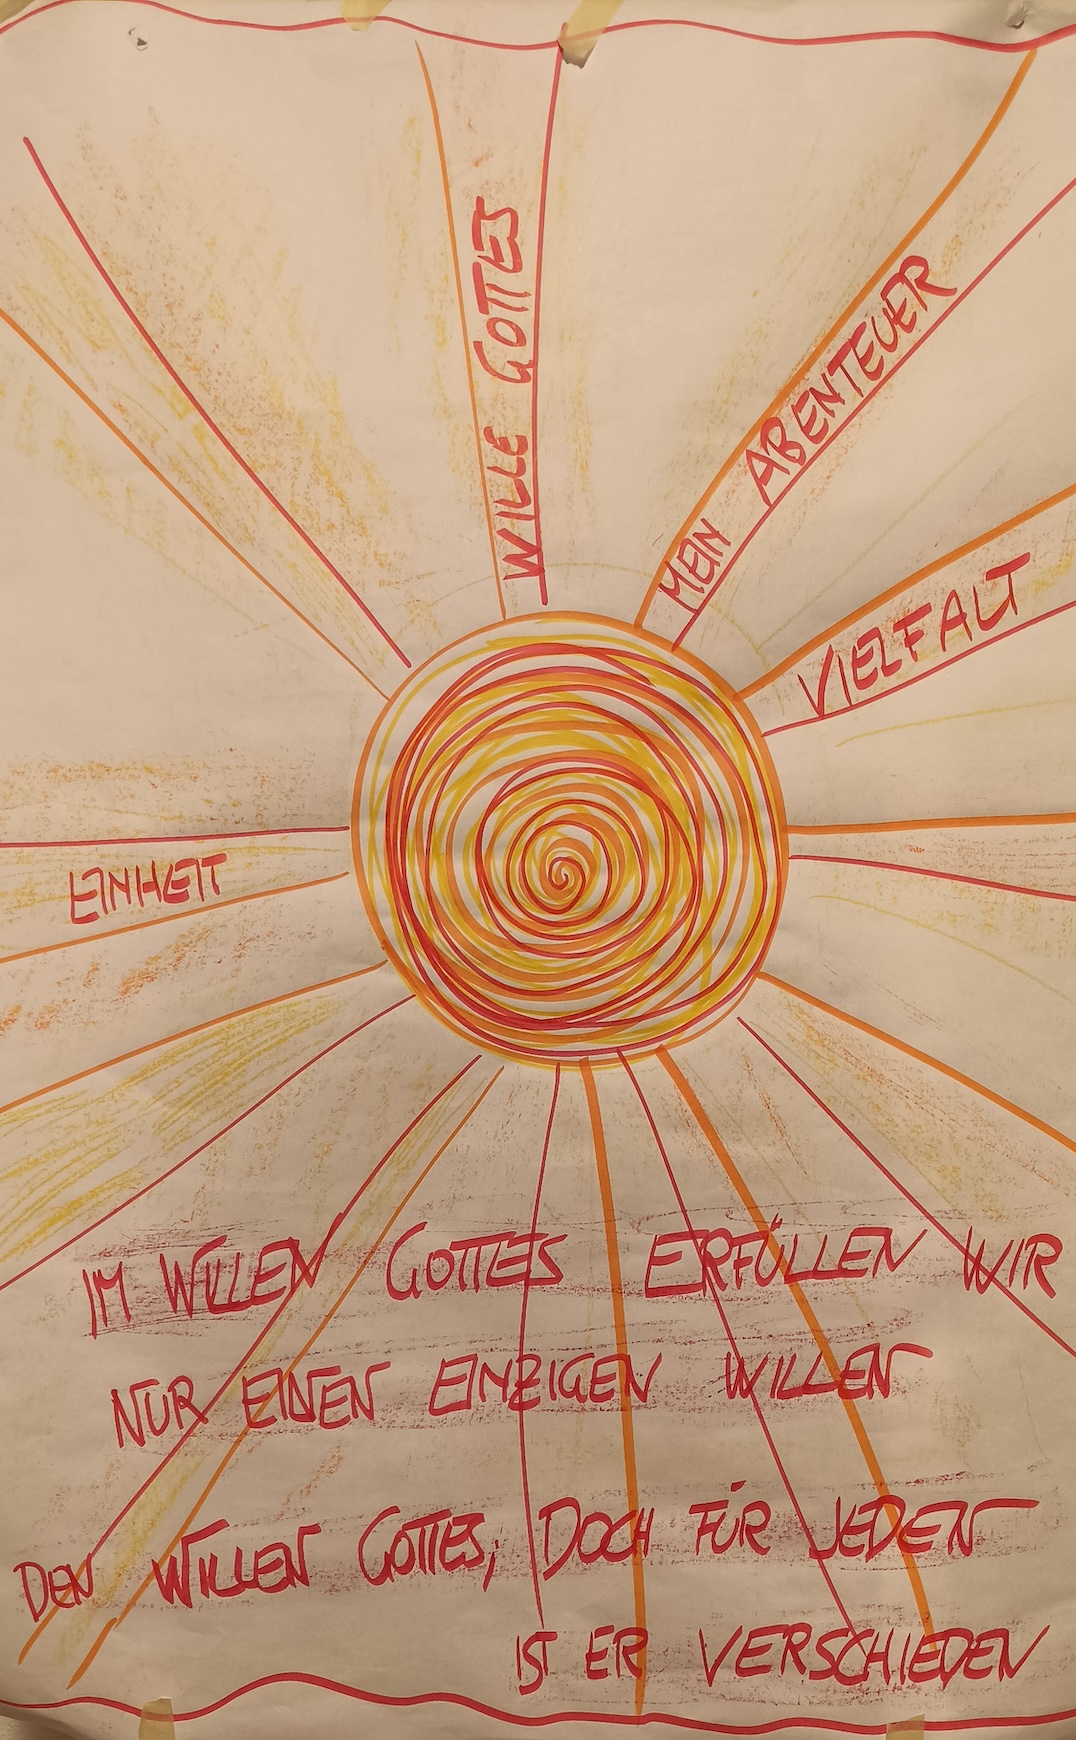 WILLE GOTTES
MEIN ABENTEUER
VIELFALT
EINHEIT
IM WILLEN GOTTES ERFÜLLEN WIR
NUR EINEN EINZIGEN WILLEN
DEN WILLEN GOTTES, DOCH FÜR JEDEN
IST ER VERSCHIEDEN